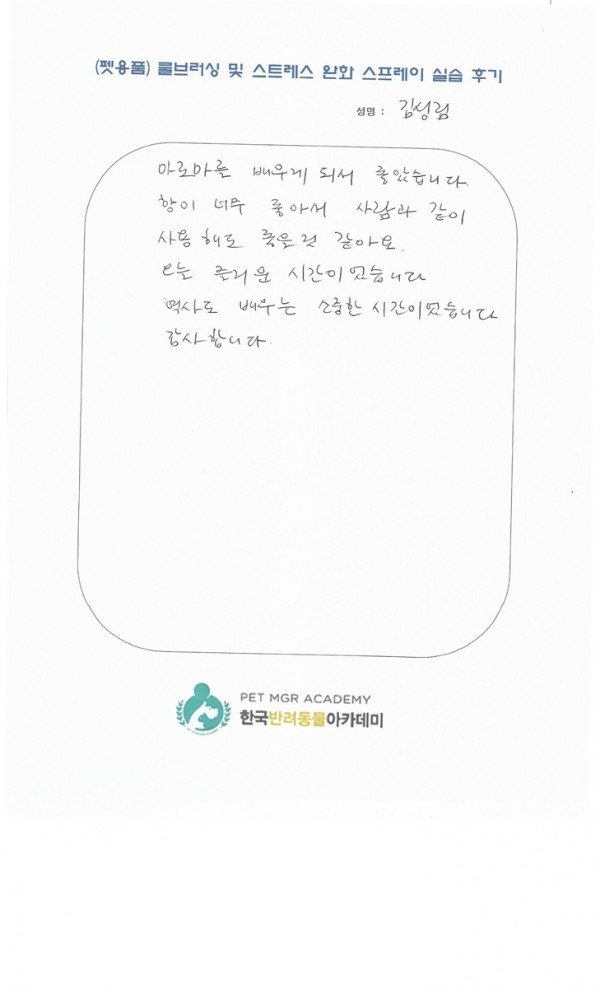 (펫용품) 룸브러싱 및 스트레스 완화 스프레이 실습 후기
성명 : 김성림
아로마를 배우게 되서 좋았습니다.
향이 너무 좋아서 사람과 같이
사용해도 좋을것 같아요.
오늘 즐거운 시간이었습니다
역사도 배우는 소중한 시간이었습니다
감사합니다.
PET MGR ACADEMY
한국반려동물아카데미